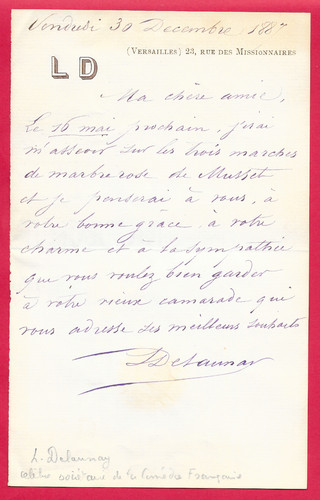 Vendredi 30 Decembre 1887
(VERSAILLES) 23, RUE DES MISSIONNAIRES
LD
Ma chère amie,
Le 16 mai prochain, j'irai
m'asseoir sur les trois marches
de marbre rose de Musset
et je penserai à vous, à
votre bonne grâce, à votre
charme et à la sympathie
que vous voulez bien garder
à votre vieux camarade qui
vous adresse ses meilleurs souhaits
LDelaunay
L. Delaunay
célèbre sociétaire de la Comédie Française